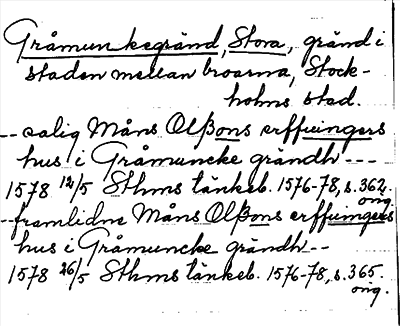 Gråmunkegränd, Stora, gränd i
staden mellan broarna, Stock-
holms stad.
-- salig Måns Olßons erffuingers
hus i Gråmuncke grändh ---
1578 12/5 Sthms tänkeb. 1576-78, s. 362.
orig.
-- framlidne Måns Olßons erffuingers
hus i Gråmuncke grändh --
1578 26/5 Sthms tänkeb. 1576-78, s. 365.
orig.